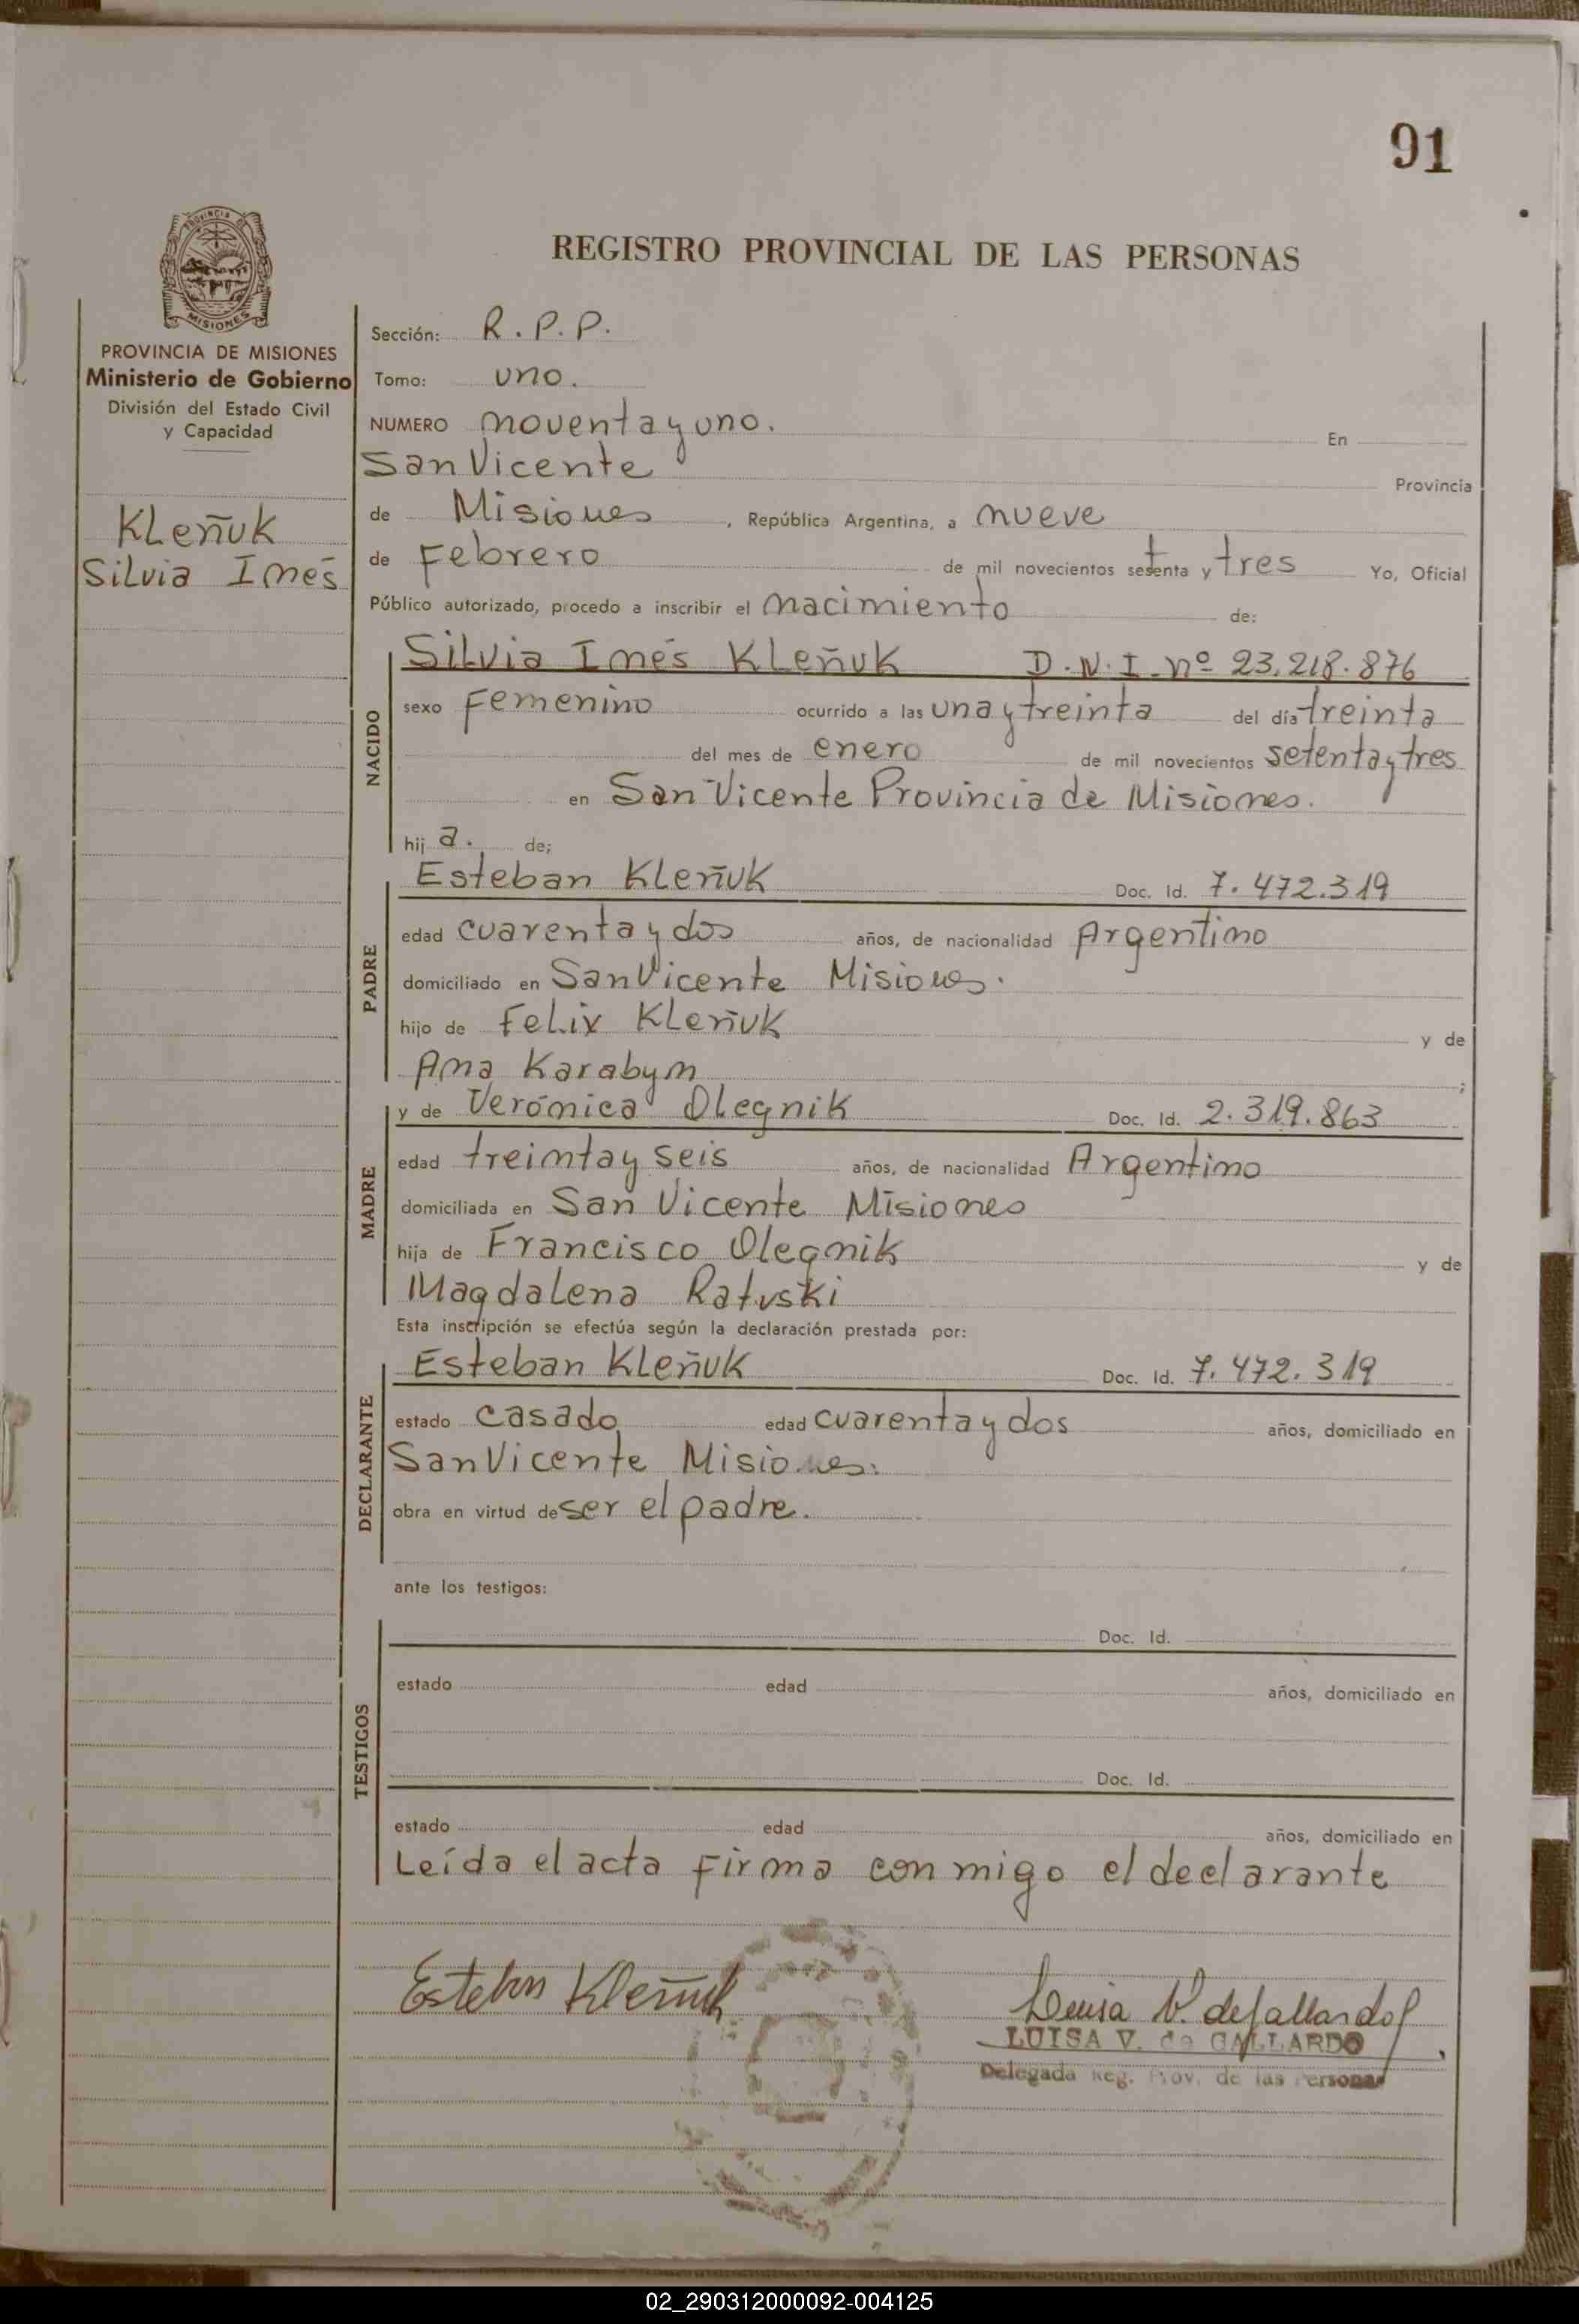 91
REGISTRO PROVINCIAL DE LAS PERSONAS
PROVINCIA DE MISIONES
PROVINCIA DE MISIONES
Ministerio de Gobierno
División del Estado Civil
y Capacidad
Kleñuk
Silvia Inés
Sección: R.P.P.
Tomo: uno.
NUMERO noventa y uno. En
San Vicente Provincia
de Misiones, República Argentina, a nueve
de Febrero de mil novecientos setenta y tres Yo, Oficial
Público autorizado, procedo a inscribir el nacimiento de:
NACIDO
Silvia Inés Kleñuk D.N.I. nº 23.218.876
sexo Femenino ocurrido a las una y treinta del día treinta
del mes de enero de mil novecientos setenta y tres
en San Vicente Provincia de Misiones.
hij a. de;
PADRE
Esteban Kleñuk Doc. Id. 7.472.319
edad cuarenta y dos años, de nacionalidad Argentino
domiciliado en San Vicente Misiones.
hijo de Felix Kleñuk y de
Ana Karabyn ;
MADRE
y de Verónica Olegnik Doc. Id. 2.319.863
edad treinta y seis años, de nacionalidad Argentino
domiciliada en San Vicente Misiones
hija de Francisco Olegnik y de
Magdalena Ratuski
Esta inscripción se efectúa según la declaración prestada por:
DECLARANTE
Esteban Kleñuk Doc. Id. 7.472.319
estado casado edad cuarenta y dos años, domiciliado en
San Vicente Misiones.
obra en virtud de ser el padre.
ante los testigos:
TESTIGOS
Doc. Id.
estado edad años, domiciliado en
Doc. Id.
estado edad años, domiciliado en
Leída el acta firma conmigo el declarante
Esteban Kleñuk
Luisa V. de Gallardo
LUISA V. de GALLARDO
Delegada Reg. Prov. de las Personas
02_290312000092-004125